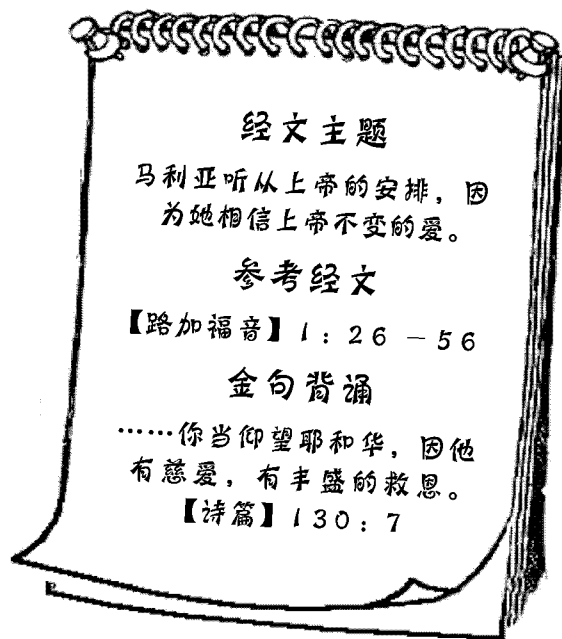 经文主题
马利亚听从上帝的安排，因
为她相信上帝不变的爱。
参考经文
【路加福音】1：26－56
金句背诵
……你当仰望耶和华，因他
有慈爱，有丰盛的救恩。
【诗篇】130：7